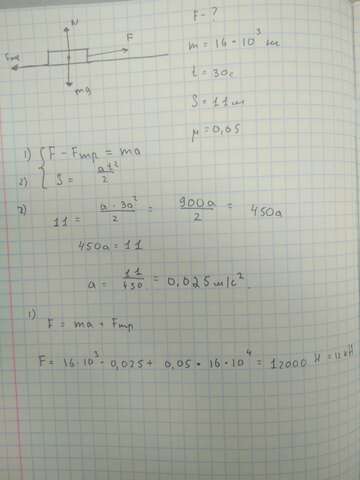 F - ?
N
F
Fтр
mg
m = 16 · 10³ кг
t = 30с
S = 11м
μ = 0,05
1) F - Fтр = ma
2) S = at²/2
2) 11 = a · 30²/2 = 900a/2 = 450a
450a = 11
a = 11/450 = 0,025 м/с².
1)
F = ma + Fтр
F = 16·10³ · 0,025 + 0,05 · 16·10⁴ = 12000 Н = 12 кН